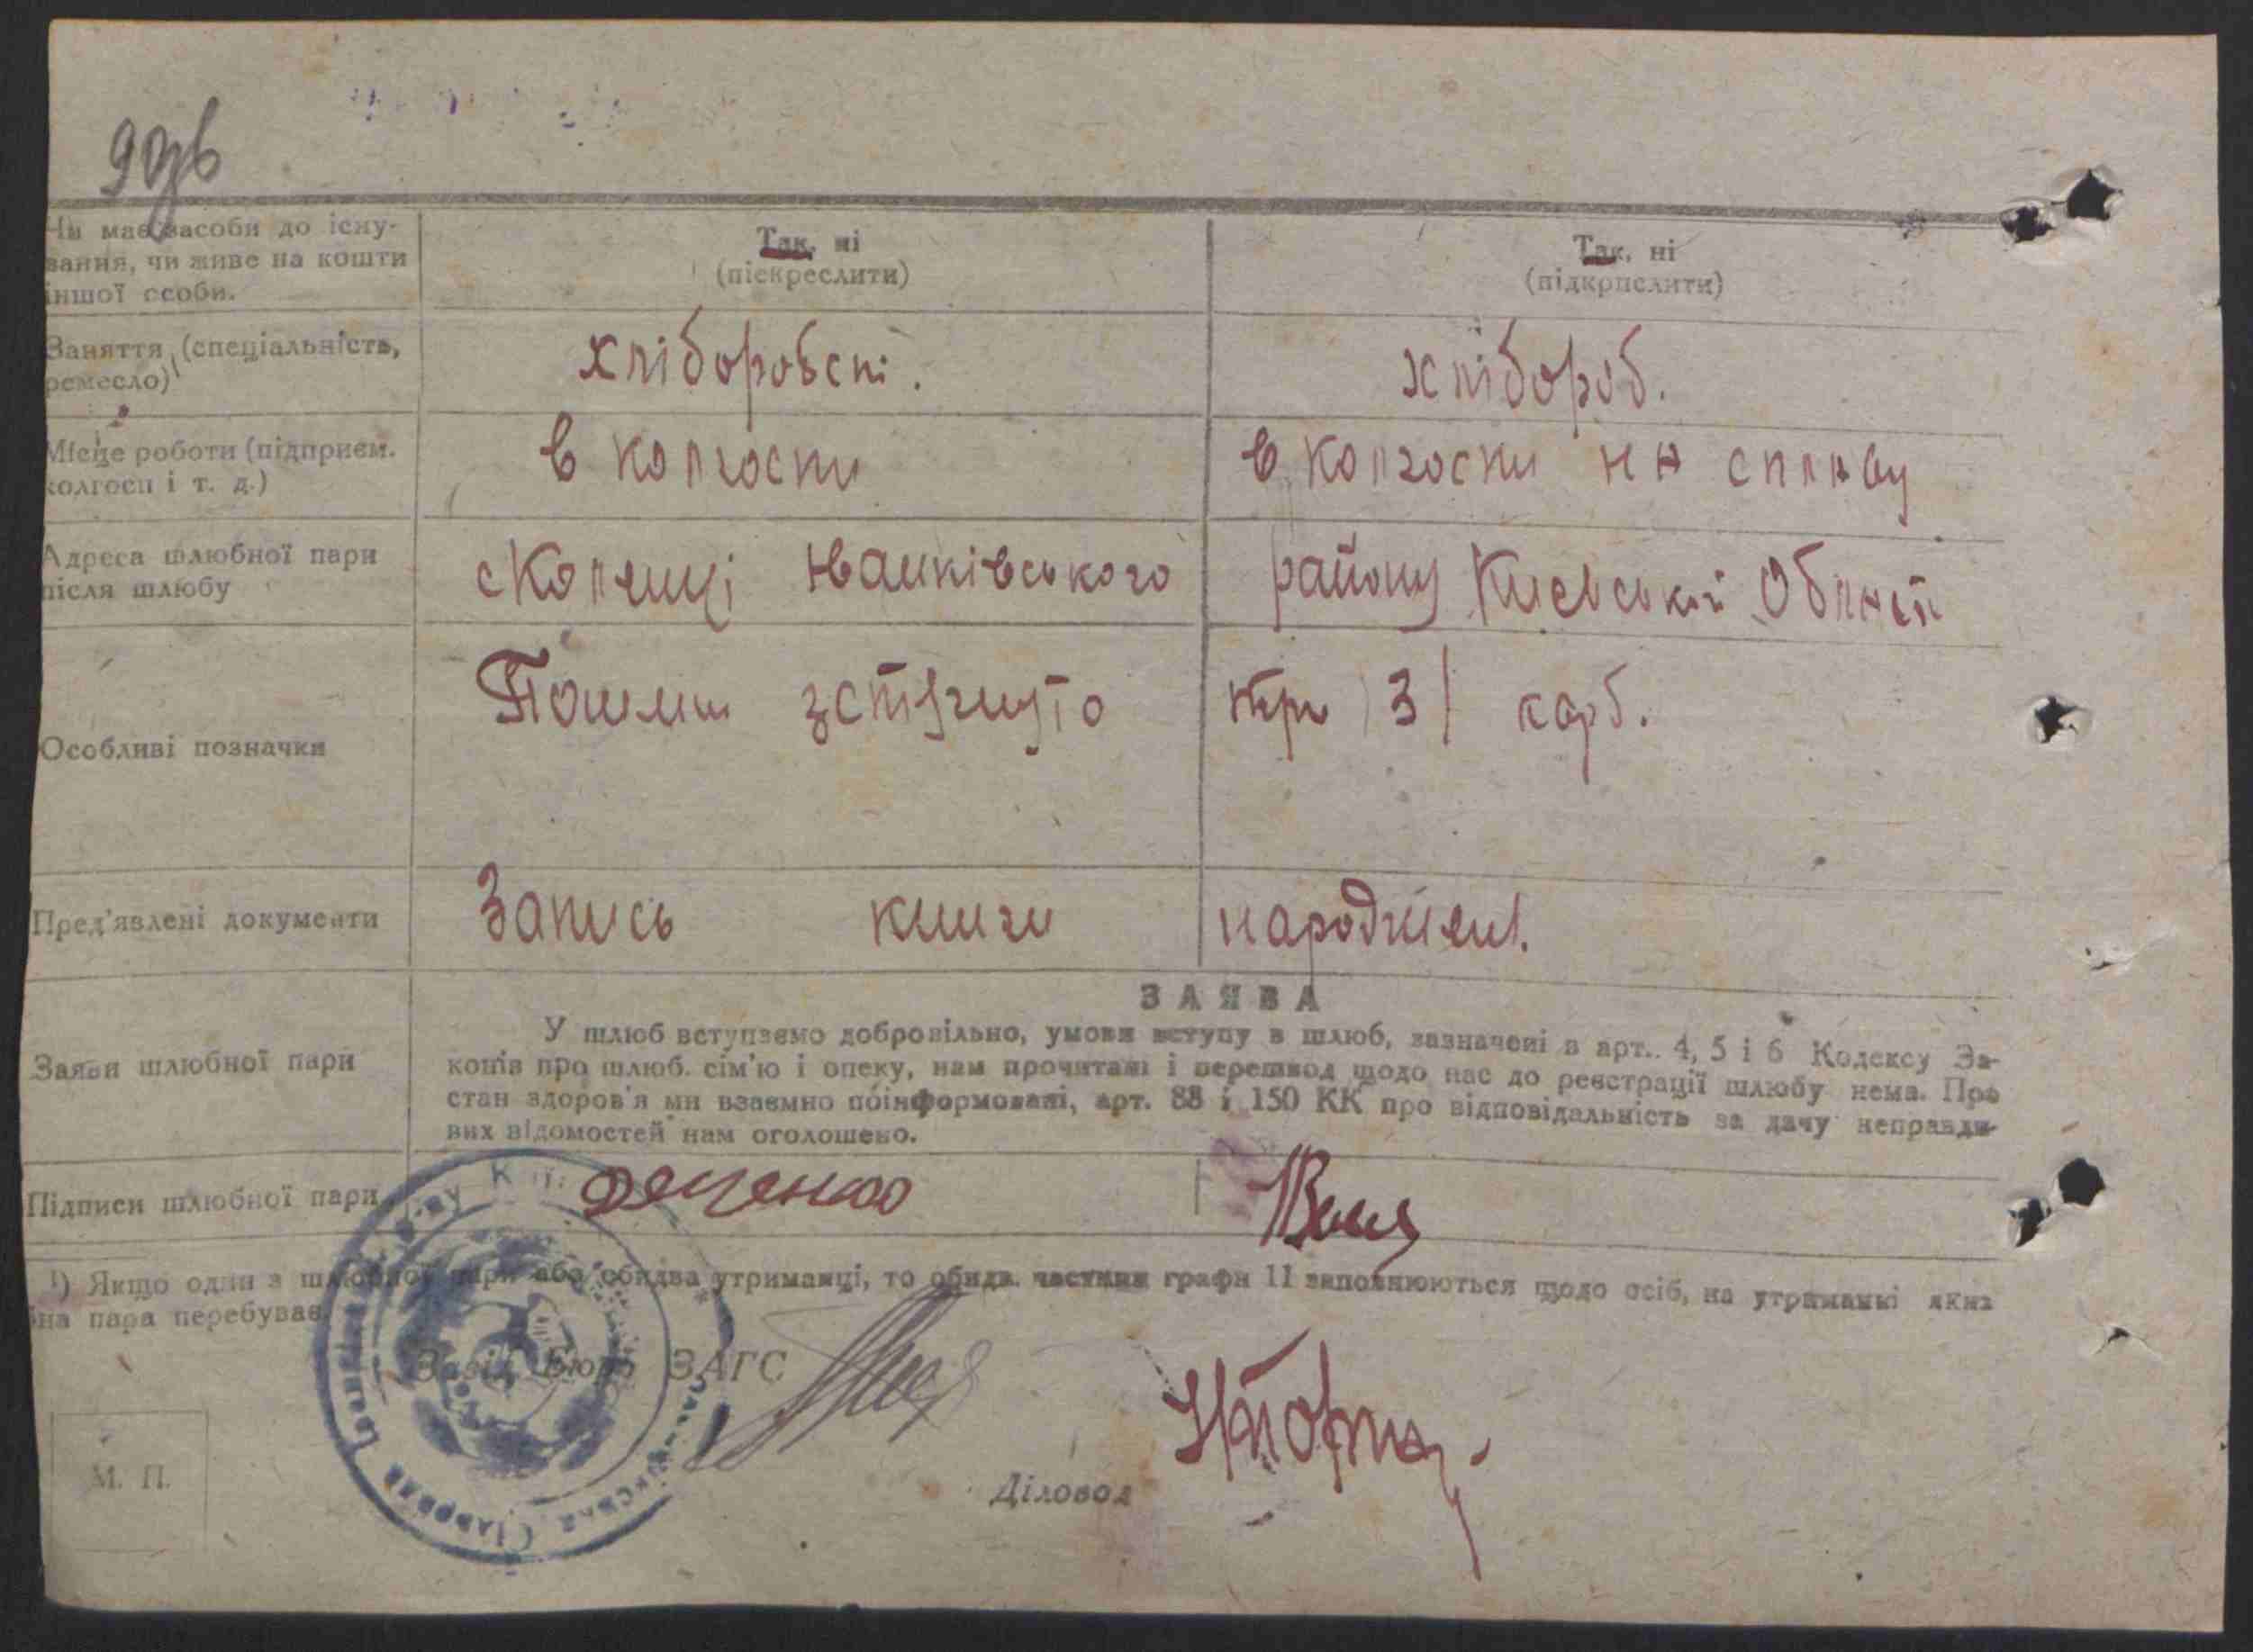 Чи має засоби до існу-
вання, чи живе на кошти
іншої особи.
Так, ні
(підкреслити)
Так, ні
(підкрпслити)
Заняття (спеціальність,
ремесло)
хліборобслі.
хлібороб.
Місце роботи (підприєм.
колгосп і т. д.)
в колгоспи
в колгоспи на сплаву
Адреса шлюбної пари
після шлюбу
с Коленці Іванківського
району Києвської Области
Особливі позначки
Пошлин зстягнуто
крб 3 карб.
Пред'явлені документи
Запись книги
народжені.
ЗАЯВА
Заяви шлюбної пари
У шлюб вступаємо добровільно, умови вступу в шлюб, зазначені в арт.. 4, 5 і 6 Кодексу За-
конів про шлюб. сім'ю і опеку, нам прочитані і перешкод щодо нас до реєстрації шлюбу нема. Про
стан здоров'я ми взаємно поінформовані, арт. 88 і 150 КК про відповідальність за дачу неправди-
вих відомостей нам оголошено.
Підписи шлюбної пари
Деценко
¹) Якщо один з шлюбної пари або обидва утриманці, то обидв. частини графи 11 заповнюються щодо осіб, на утриманні яких
бна пара перебуває.
Завід. Бюро ЗАГС
М. П.
Діловод